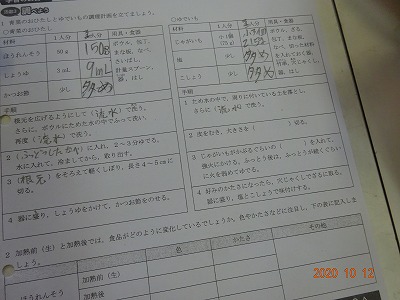 調べよう
1 青菜のおひたしとゆでいもの調理計画を立てましょう。
○青菜のおひたし
材料 1人分 用具・食器
ほうれんそう 50 g 150g ボウル、包丁、まな板、なべ、さいばし、計量スプーン、器、はし
しょうゆ 3 mL 9mL
かつお節 少々 多め
手順
1 根元を広げるようにして（流水）で洗う。
さらに、ボウルにためた水の中でふって洗い、
再度（流水）で洗う。
2（ふっとうした）に入れ、2～3分ゆでる。
水に入れ、冷ましてから、取り出す。
3（根元）をそろえて軽くしぼり、長さ4～5cmに
切る。
4 器に盛り、しょうゆをかけて、かつお節をのせる。
○ゆでいも
材料 1人分 用具・食器
じゃがいも
塩 少々 多め
こしょう 少々 多め
手順
1 ため水の中で、周りに付いている土を落とし、
さらに（流水）で洗う。
2 皮をむき、大きさを（ ）切る。
3 じゃがいもがかぶるぐらいの（ ）を入れて、
強火にかける。ふっとう後は、ふっとうが続くぐらい
に火を弱めてゆでる。
4 好みのかたさになったら、穴じゃくしでざるに取る。
器に盛り、塩とこしょうで味付けする。
2 加熱前（生）と加熱後では、食品がどのように変化しているでしょうか。色やかたさなどに注目し、下の表に記入しま
しょう。
色 かたさ その他
ほうれんそう 加熱前（生）
加熱後
加熱前（生）
2020 10 12